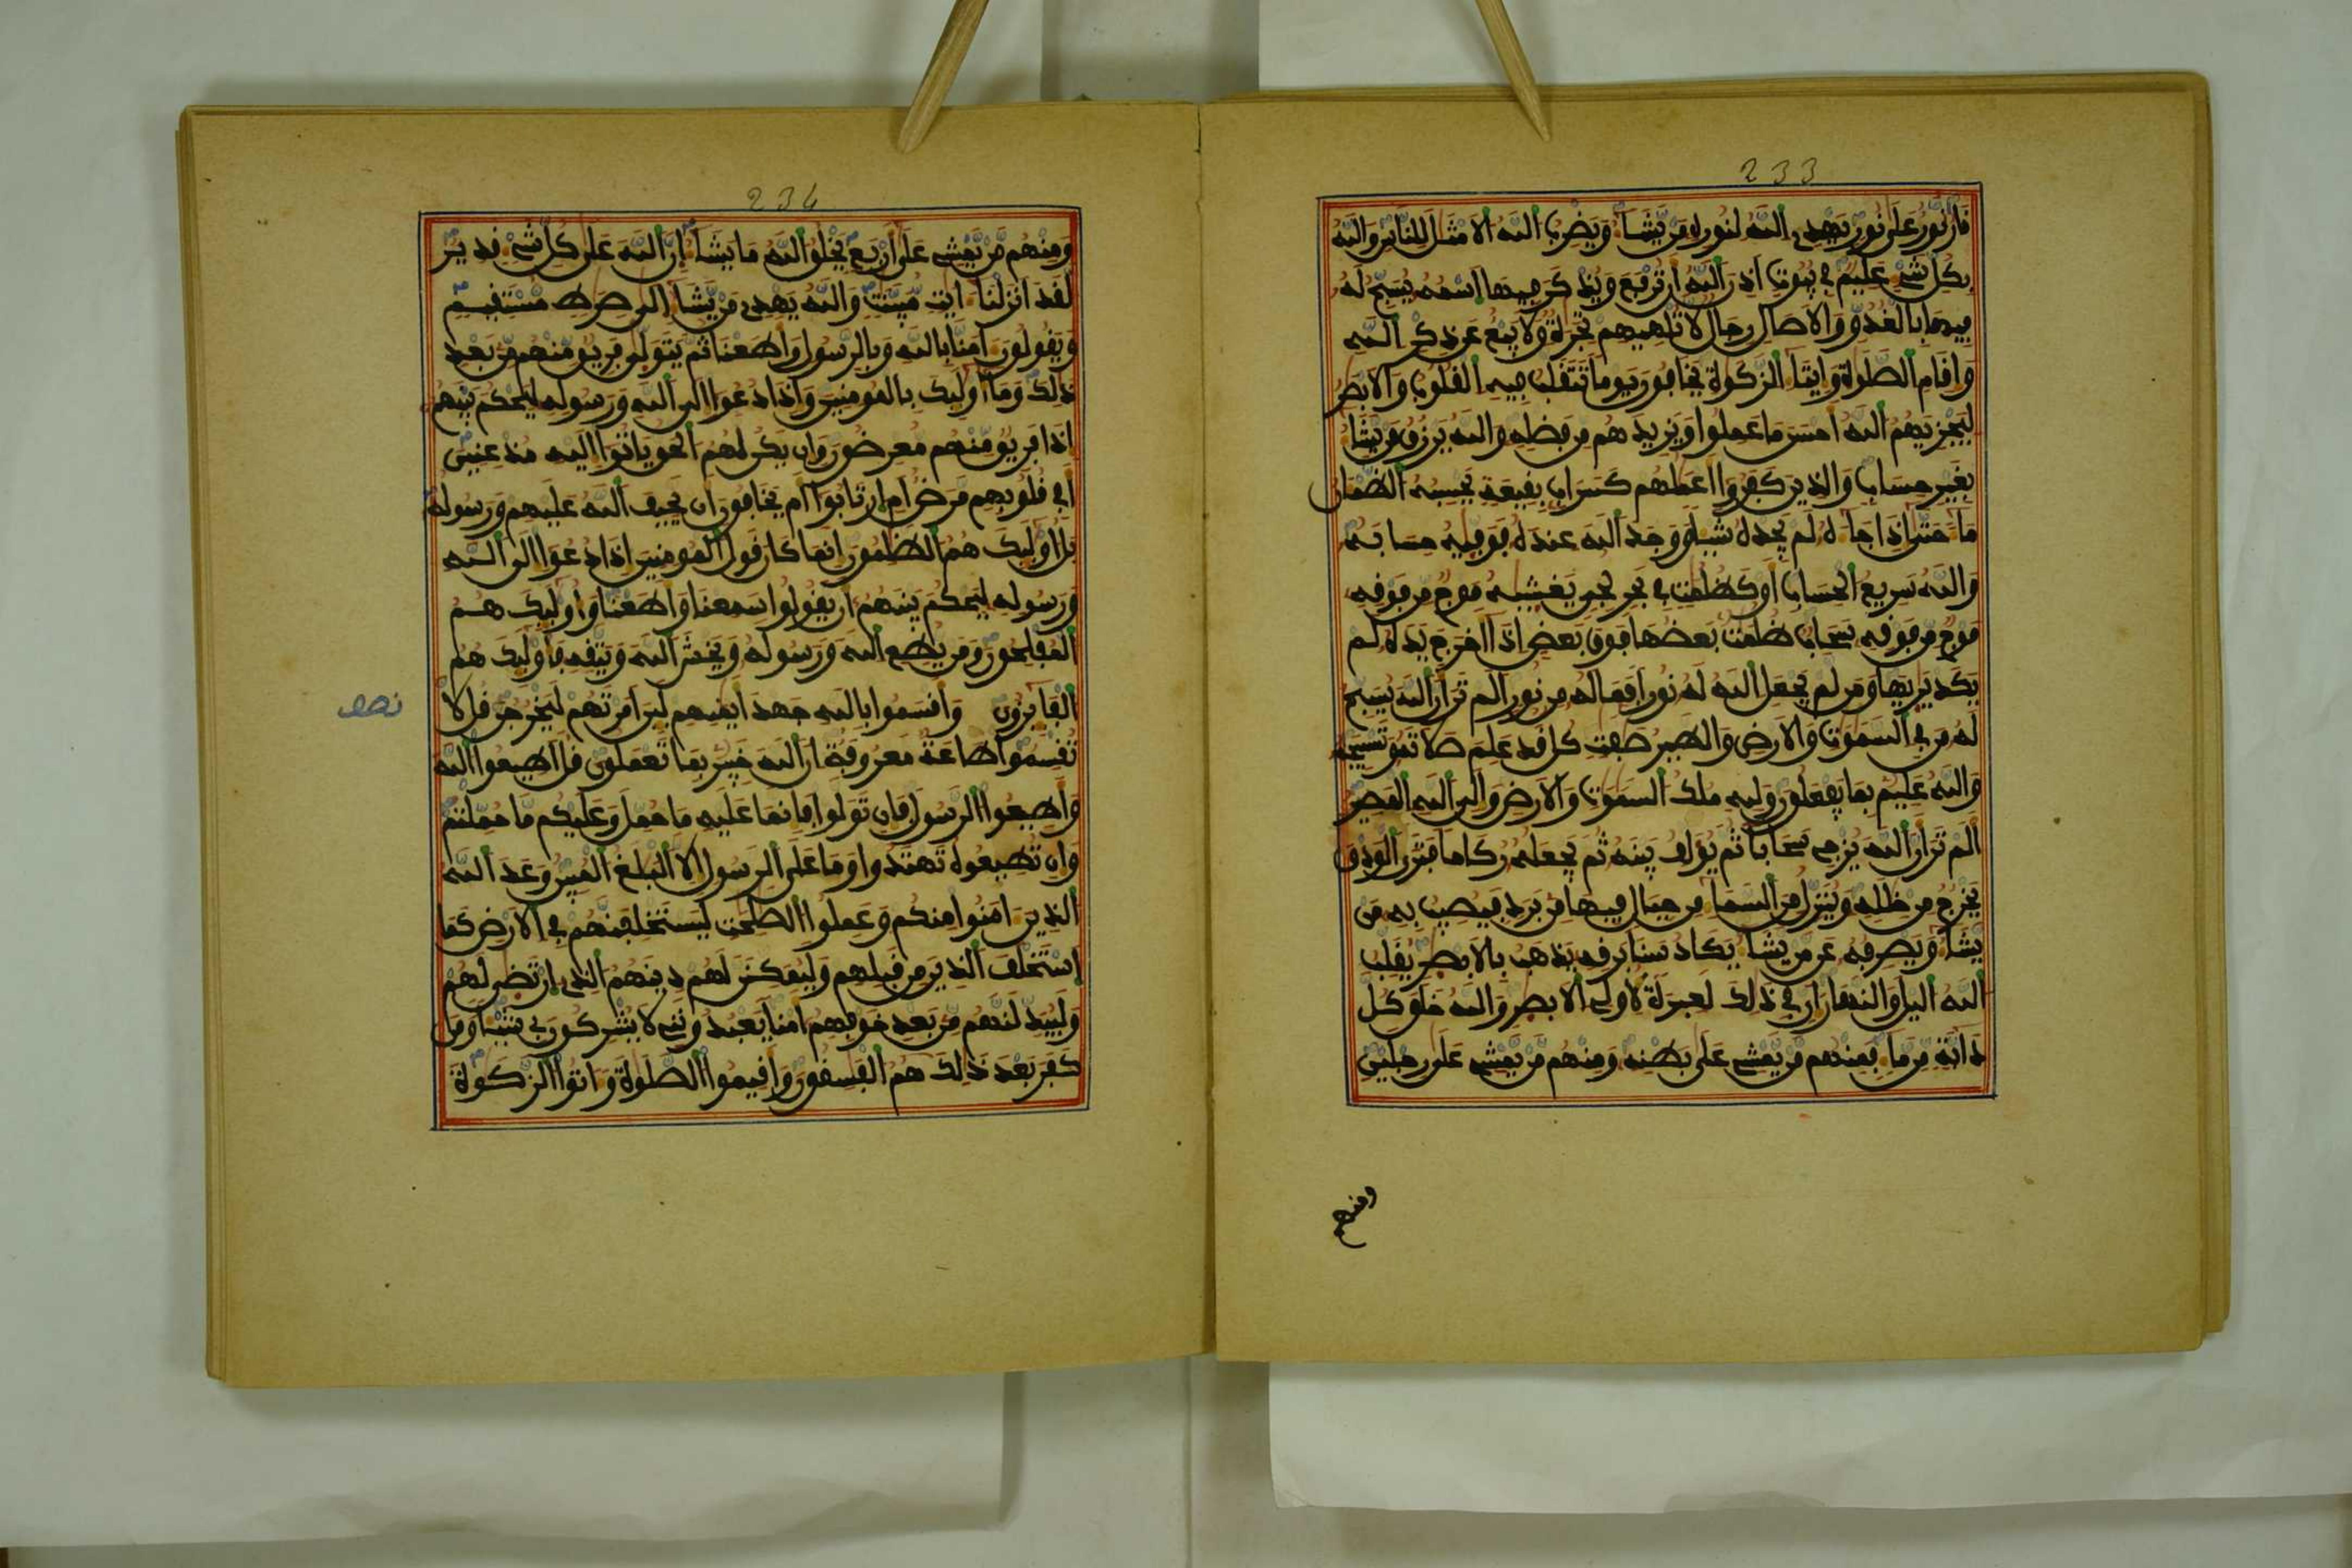 233
نار نور على نور يهدى الله لنوره من يشا ويضرب الله الامثل للناس والله
بكل شى عليم فى بيوت اذن الله ان ترفع ويذكر فيها اسمه يسبح له
فيها بالغدو والاصال رجال لا تلهيهم تجرة ولا بيع عن ذكر الله
واقام الصلوة وايتا الزكوة يخافون يوما تتقلب فيه القلوب والابصر
ليجزيهم الله احسن ما عملوا ويزيدهم من فضله والله يرزق من يشا
بغير حساب والذين كفروا اعملهم كسراب بقيعة يحسبه الظمان
ما حتى اذا جا ه لم يجده شيا ووجد الله عنده فوفيه حسابه
والله سريع الحساب او كظلمت فى بحر لجى يغشيه موج من فوفه
موج من فوفه سحاب ظلمت بعضها فوق بعض اذا اخرج يده لم
يكد يريها ومن لم يجعل الله له نورا فما له من نور الم تر ان الله يسبح
له من فى السموت والارض والطير صفت كل قد علم صلاته وتسبيحه
والله عليم بما يفعلون ولله ملك السموت والارض والى الله المصير
الم تر ان الله يزجى سحابا ثم يولف بينه ثم يجعله ركاما فترى الودق
يخرج من خلله وينزل من السما من جبال فيها من برد فيصيب به من
يشا ويصرفه عن من يشا يكاد سنا برقه يذهب بالابصر يقلب
الله اليل والنهار ان فى ذلك لعبرة لاولى الابصر والله خلق كل
دابة من ما فمنهم من يمشى على بطنه ومنهم من يمشى على رجلين
ومنهم
234
ومنهم من يمشى على اربع يخلق الله ما يشا ان الله على كل شى قدير
لقد انزلنا ايت مبينت والله يهدى من يشا الى صرط مستقيم
ويقولون امنا بالله وبالرسول واطعنا ثم يتولى فريق منهم من بعد
ذلك وما اوليك بالمومنين واذا دعوا الى الله ورسوله ليحكم بينهم
اذا فريق منهم معرضون وان يكن لهم الحق ياتوا اليه مذعنين
افى قلوبهم مرض ام ارتابوا ام يخافون ان يحيف الله عليهم ورسوله
بل اوليك هم الظلمون انما كان قول المومنين اذا دعوا الى الله
ورسوله ليحكم بينهم ان يقولوا سمعنا واطعنا واوليك هم
المفلحون ومن يطع الله ورسوله ويخش الله ويتقه فاوليك هم
الفايزون واقسموا بالله جهد ايمنهم لين امرتهم ليخرجن قل لا
نصف
تقسموا طاعة معروفة ان الله خبير بما تعملون قل اطيعوا الله
واطيعوا الرسول فان تولوا فانما عليه ما حمل وعليكم ما حملتم
وان تطيعوه تهتدوا وما على الرسول الا البلغ المبين وعد الله
الذين امنوا منكم وعملوا الصلحت ليستخلفنهم فى الارض كما
استخلف الذين من قبلهم وليمكنن لهم دينهم الذى ارتضى لهم
وليبدلنهم من بعد خوفهم امنا يعبدوننى لا يشركون بى شيا ومن
كفر بعد ذلك هم الفسقون واقيموا الصلوة واتوا الزكوة